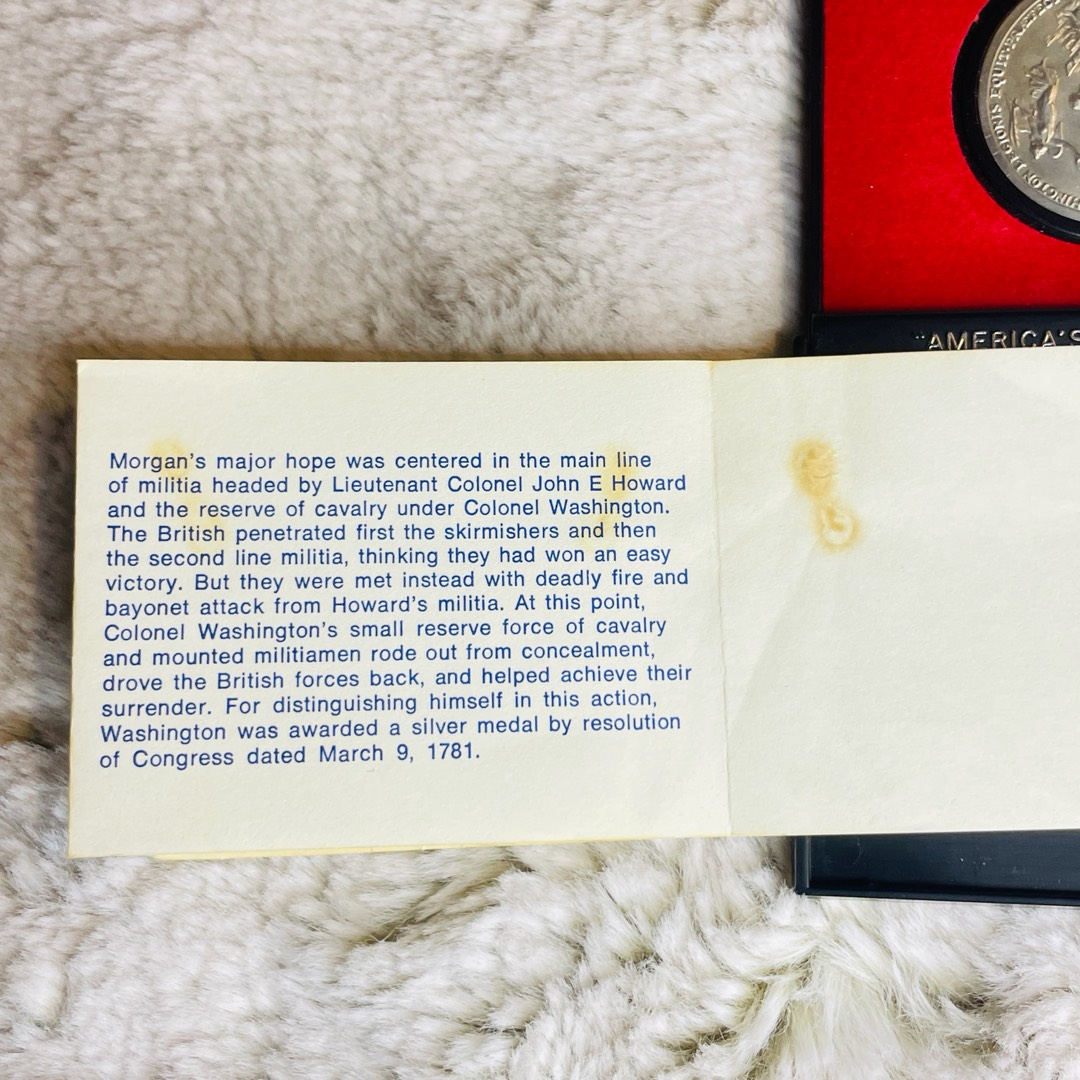 LEGIONIS EQUIT
"AMERICA'S
Morgan's major hope was centered in the main line
of militia headed by Lieutenant Colonel John E Howard
and the reserve of cavalry under Colonel Washington.
The British penetrated first the skirmishers and then
the second line militia, thinking they had won an easy
victory. But they were met instead with deadly fire and
bayonet attack from Howard's militia. At this point,
Colonel Washington's small reserve force of cavalry
and mounted militiamen rode out from concealment,
drove the British forces back, and helped achieve their
surrender. For distinguishing himself in this action,
Washington was awarded a silver medal by resolution
of Congress dated March 9, 1781.